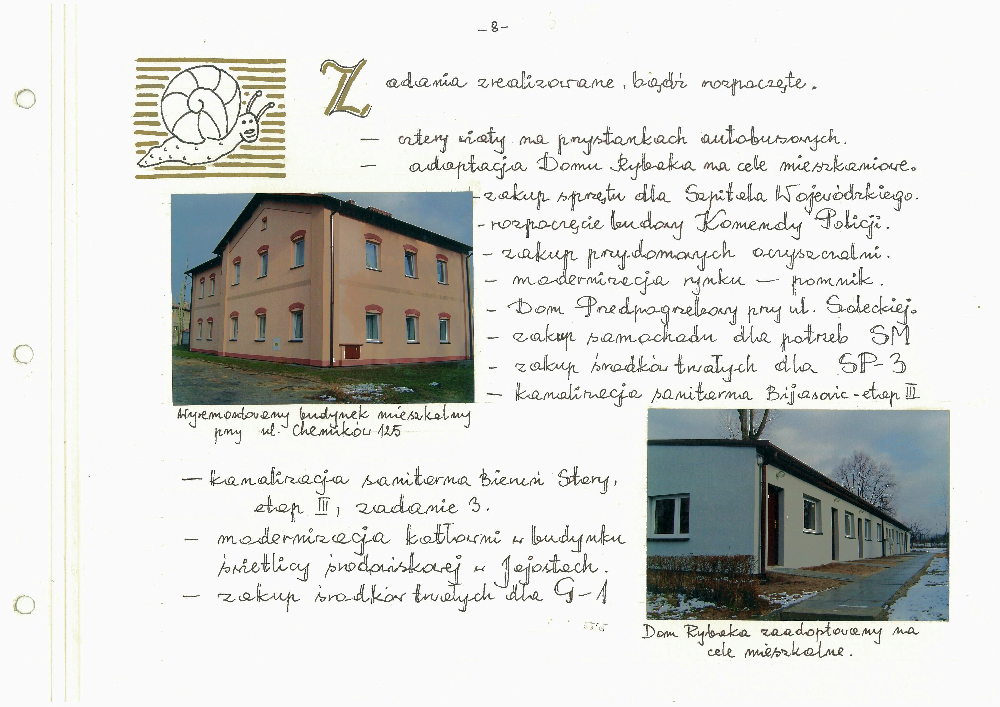 - 8 -
Zadania zrealizowane, bądź rozpoczęte.
— cztery wiaty na przystankach autobusowych.
— adaptacja Domu Rybaka na cele mieszkaniowe.
- zakup sprzętu dla Szpitala Wojewódzkiego.
- rozpoczęcie budowy Komendy Policji.
- zakup przydomowych oczyszczalni.
— modernizacja rynku — pomnik.
- Dom Przedpogrzebowy przy ul. Soleckiej.
- zakup samochodu dla potrzeb SM
- zakup środków trwałych dla SP-3
- kanalizacja sanitarna Bijasowic - etap III
Wyremontowany budynek mieszkalny
przy ul. Chemików 125
— kanalizacja sanitarna Bieruń Stary,
etap III, zadanie 3.
— modernizacja kotłowni w budynku
świetlicy środowiskowej w Jajostach.
— zakup środków trwałych dla G-1
Dom Rybaka zaadoptowany na
cele mieszkalne.